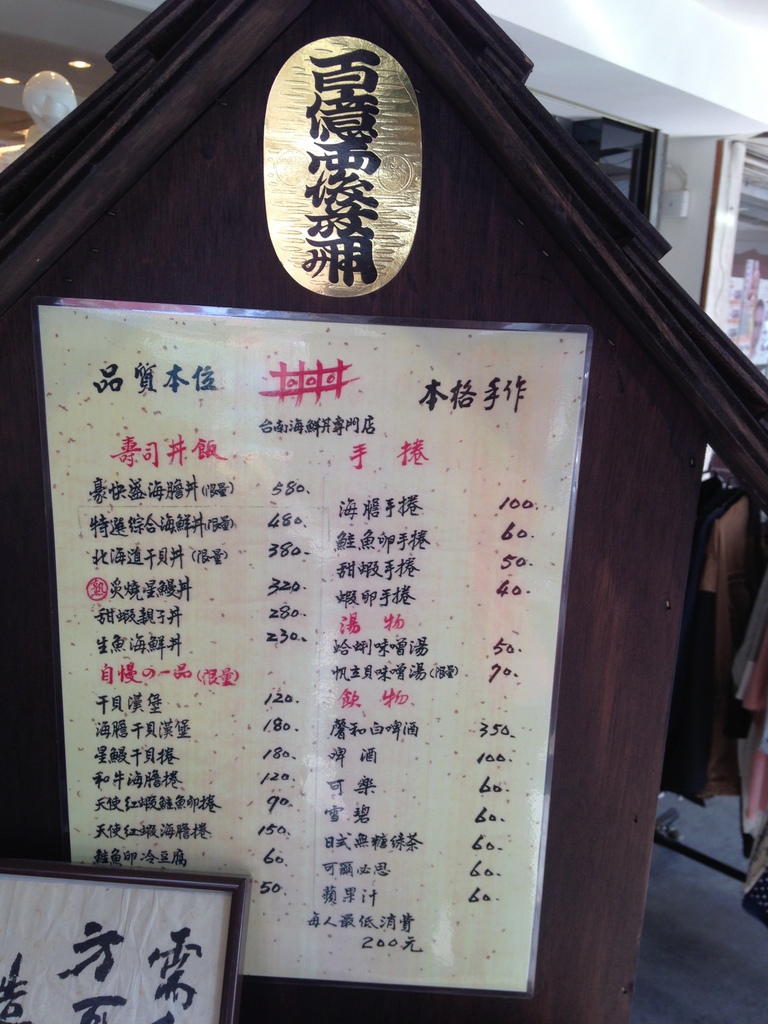 百億兩後藤
品質本位
本格手作
台南海鮮丼專門店
壽司丼飯
豪快盛海膽丼(限量) 580.
特選綜合海鮮丼(限量) 480.
北海道干貝丼(限量) 380.
熟 炙燒星鰻丼 320.
甜蝦親子丼 280.
生魚海鮮丼 230.
自慢の一品(限量)
干貝漢堡 120.
海膽干貝漢堡 180.
星鰻干貝捲 180.
和牛海膽捲 120.
天使紅蝦鮭魚卵捲 90.
天使紅蝦海膽捲 150.
鮭魚卵冷豆腐 60.
50.
手捲
海膽手捲 100.
鮭魚卵手捲 60.
甜蝦手捲 50.
蝦卵手捲 40.
湯物
蛤蜊味噌湯 50.
帆立貝味噌湯(限量) 70.
飲物
馨和白啤酒 350.
啤酒 100.
可樂 60.
雪碧 60.
日式無糖綠茶 60.
可爾必思 60.
蘋果汁 60.
每人最低消費
200元
需
方可